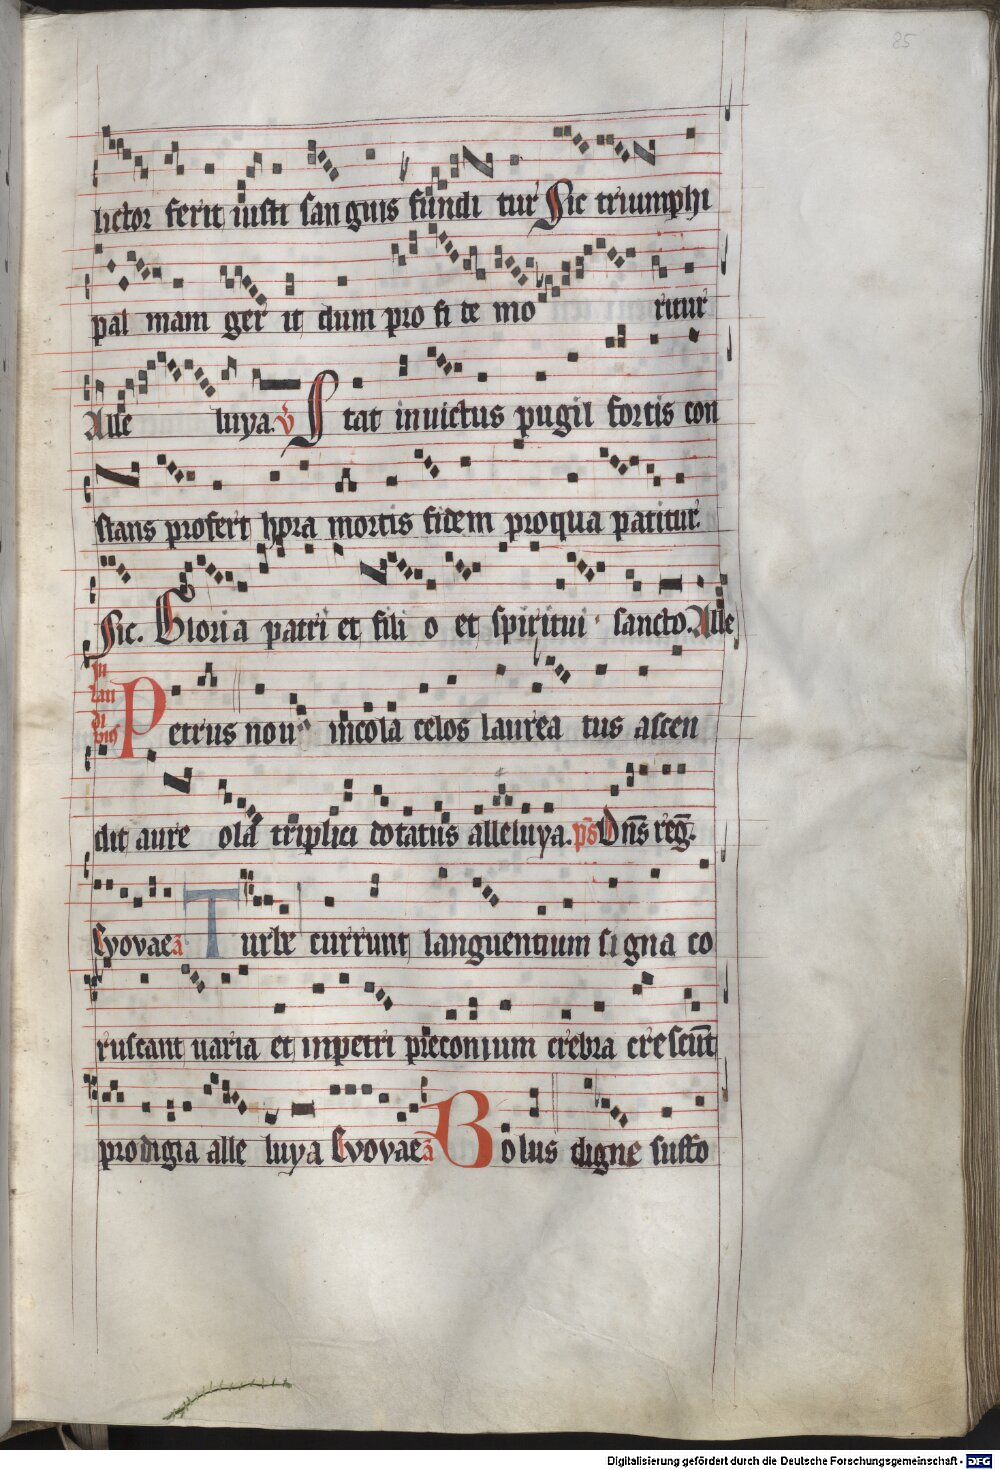 85
lictor ferit iusti sanguis fundi tur Sic triumphi
pal mam ger it dum pro fi de mo ritur
Alle luya. V Stat inuictus pugil fortis con
stans profert hora mortis fidem proqua patitur.
Sic. Gloria patri et fili o et spiritui sancto. Alle
In lau di bus Petrus nou incola celos laurea tus ascen
dit aure ola triplici dotatus alleluya. ps Dns reg.
Evovae a Turbe currunt languentium signa co
ruscant uaria et inpetri preconium crebra crescunt
prodigia alle luya Evovae a Bolus digne suffo
Digitalisierung gefördert durch die Deutsche Forschungsgemeinschaft - DFG